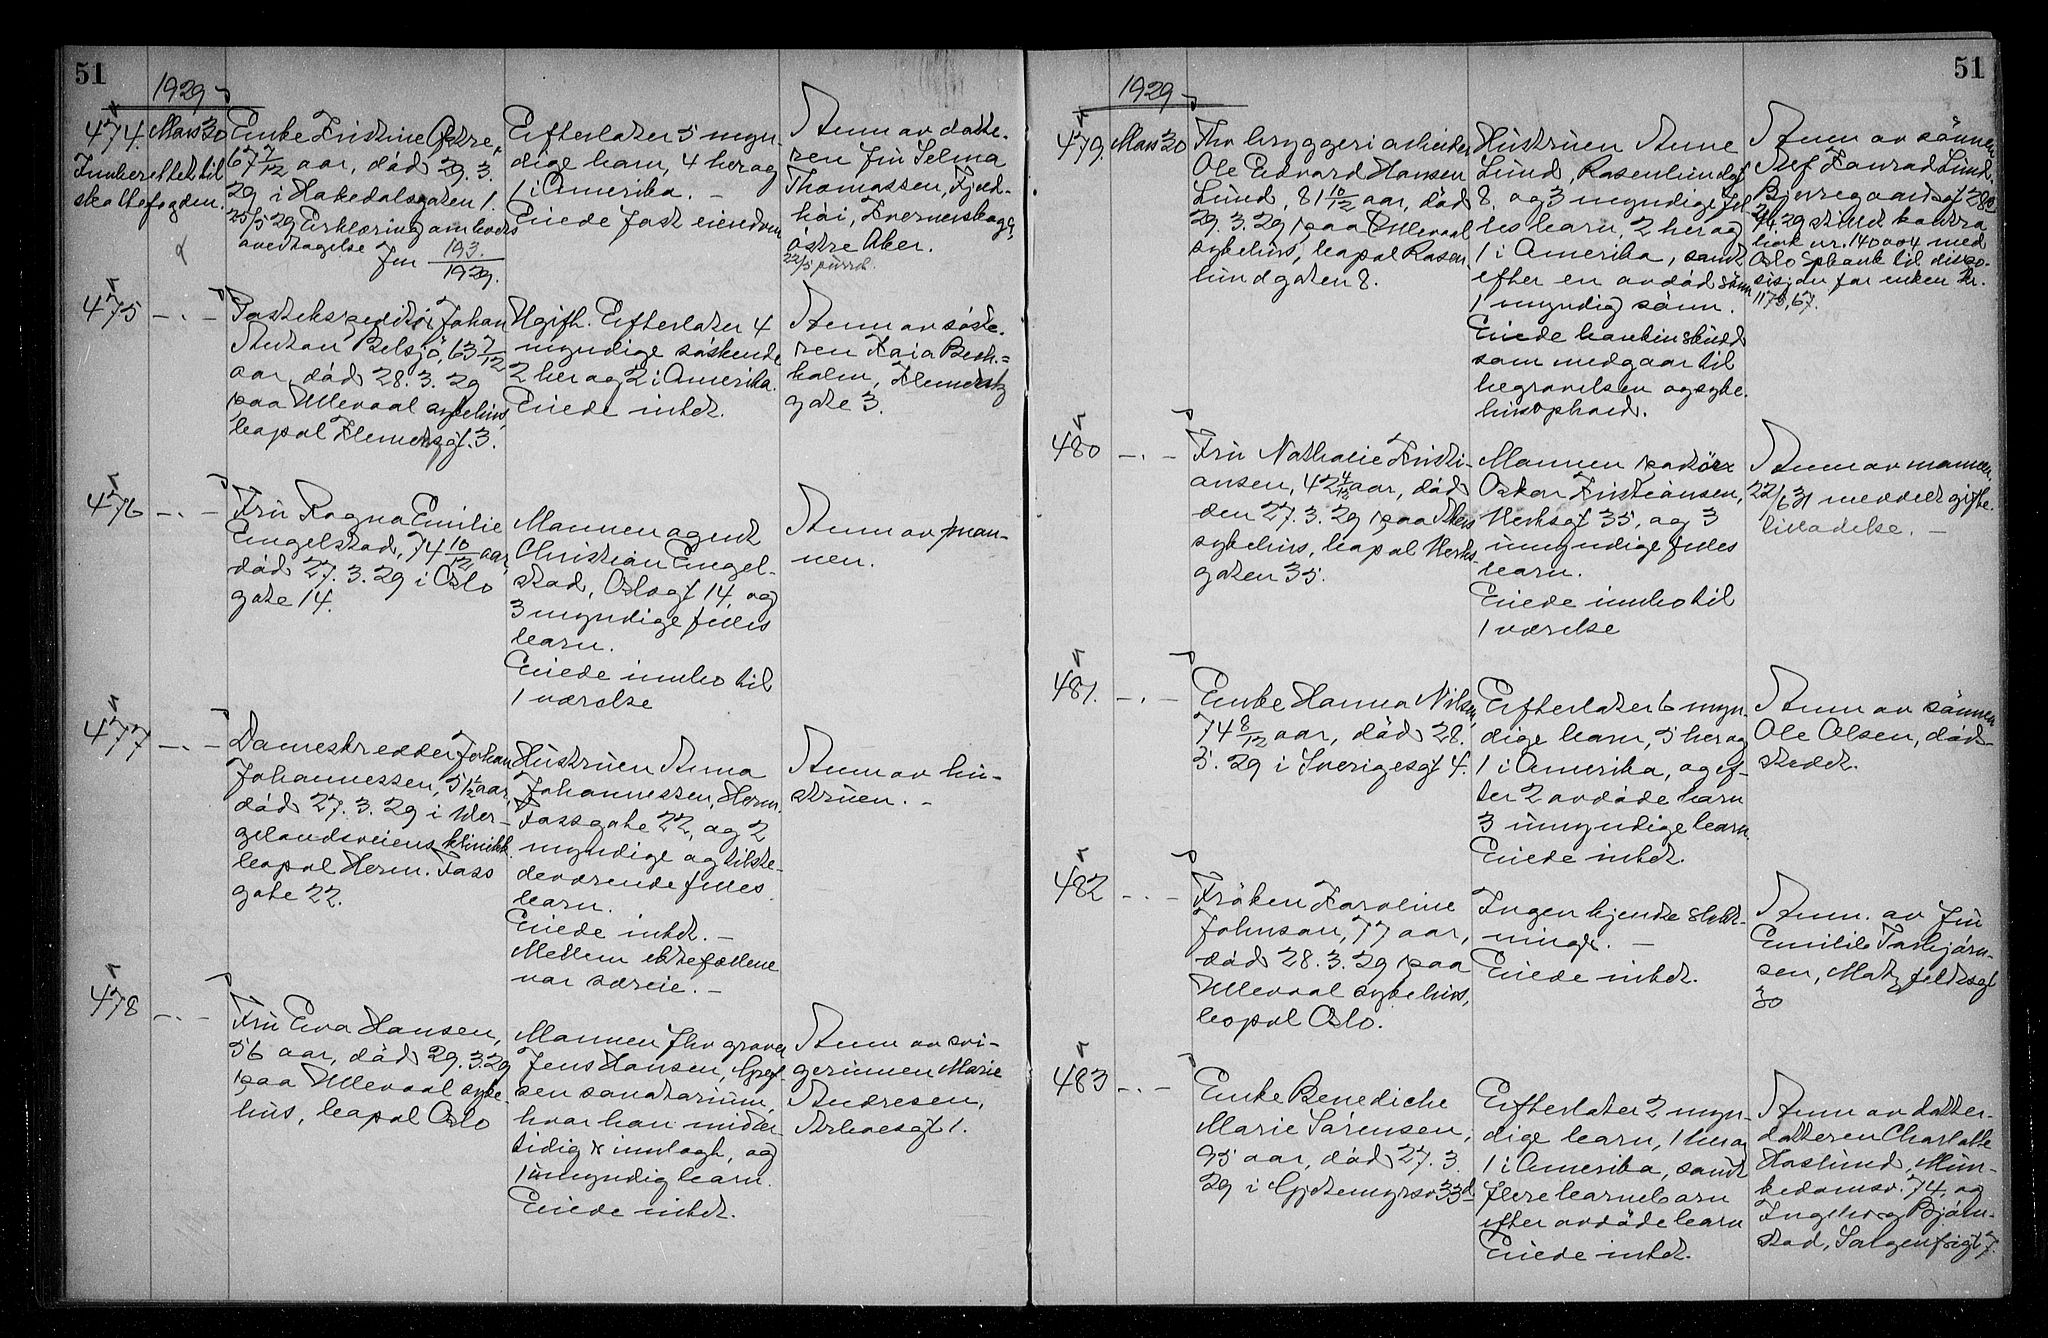 51
1929
474. Mars 30
Innberettet til
skattefogden.
Enke Kristine Østre,
67 7/12 aar, död 29. 3.
29 i Hakedalsgaten 1.
25/5 29 Erklæring om boets
overtagelse Jnr 193/1929.
Efterlater 5 myn-
dige barn, 4 her og
1 i Amerika. –
Eiede fast eiendom
Anm av datte-
ren fru Selma
Thomassen,
østre Aker.
22/5 purret.
475 – . –
Postekspeditør Johan
Anton Belsjö, 63 7/12
aar, död 28. 3. 29
paa Ullevaal sykehus,
bopal Klemetsgt. 3.
Ugift. Efterlater 4
myndige söskende
2 her og 2 i Amerika.
Eiede intet.
Anm av söste-
ren Kaia
holm, Klemets
gate 3.
476 – . –
Fru Ragna Emilie
Engelstad, 74 10/12 aar,
död 27. 3. 29 i Oslo
gate 14.
Mannen agent
Christian Engel-
stad, Oslogt 14, og
3 myndige felles
barn.
Eiede innbo til
1 værelse
Anm av man-
nen.
477 – . –
Dameskredder Johan
Johannessen, 51 aar,
död 27. 3. 29 i Wer-
gelandsveiens klinikk
bopal Herm. Foss
gate 22.
Hustruen Anna
Johannessen, Herm.
Fossgate 22, og 2
myndige og tilste-
deværende felles
barn.
Eiede intet. –
Mellem ektefellene
var særeie. –
Anm av hu-
struen. –
478 – . –
Fru Eva Hansen,
56 aar, död 29. 3. 29
paa Ullevaal syke-
hus, bopal Oslo
Mannen fhv graver
Jens Hansen, Gref-
sen sanatorium,
hvor han midler-
tidig er innlagt, og
1 umyndig barn.
Eiede intet.
Anm av svi-
gerinnen Marie
Andresen,
51
1929
479. Mars 30
Fhv bryggeriarbeider
Ole Edvard Hansen
Lund, 81 10/12 aar, död
29. 3. 29 paa Ullevaal
sykehus, bopal Rosen
lundgaten 8.
Hustruen Anne
Lund, Rosenlundgt
8, og 3 myndige fel
les barn, 2 her og
1 i Amerika, samt
efter en avdöd sönn
1 myndig sönn.
Eiede bankinskudd
som medgaar til
begravelsen og syke-
husophold.
Anm av sönnen
Alf Konrad Lund,
Bjerregaardsgt 28
29 utlevert kontra
bok nr. 14004 med
Oslo Spbank til dispo-
sisjon for enken Kr.
1175,67.
480 – . –
Fru Nathalie Kristi-
ansen, 42 4/12 aar, död
den 27. 3. 29 paa Akers
sykehus, bopal Verks-
gaten 35.
Mannen
Oskar Kristiansen,
Verksgt 35, og 3
umyndige felles
barn.
Eiede innbo til
1 værelse
Anm av mannen,
22/6 31 meddelt gifte-
tilladelse. –
481. – . –
Enke Hanna Nilsen,
74 8/12 aar, död 28.
3. 29 i Sverigesgt 4.
Efterlater 6 myn-
dige barn, 5 her og
1 i Amerika, og ef-
ter 2 avdöde barn
3 umyndige barn
Eiede intet.
Anm av sönnen
Ole Olsen, död-
stedet.
482 – . –
Fröken Karoline
Johnson, 77 aar,
död 28. 3. 29 paa
Ullevaal sykehus,
bopal Oslo.
Ingen kjendte slekt-
ninger. –
Eiede intet.
Anm. av fru
Emilie Torbjörn-
sen, Motzfeldtsgt
30
483 – . –
Enke Benedicte
Marie Sörensen,
95 aar, död 27. 3.
29 i Gjetemyrsv 33d
Efterlater 2 myn-
dige barn, 1 her og
1 i Amerika, samt
flere barnebarn
efter avdöde barn
Eiede intet.
Anm av datter-
datteren Charlotte
Haslund, Mun-
kedamsv. 74, og
Ingeborg Björn-
stad, Sorgenfrigt 7.